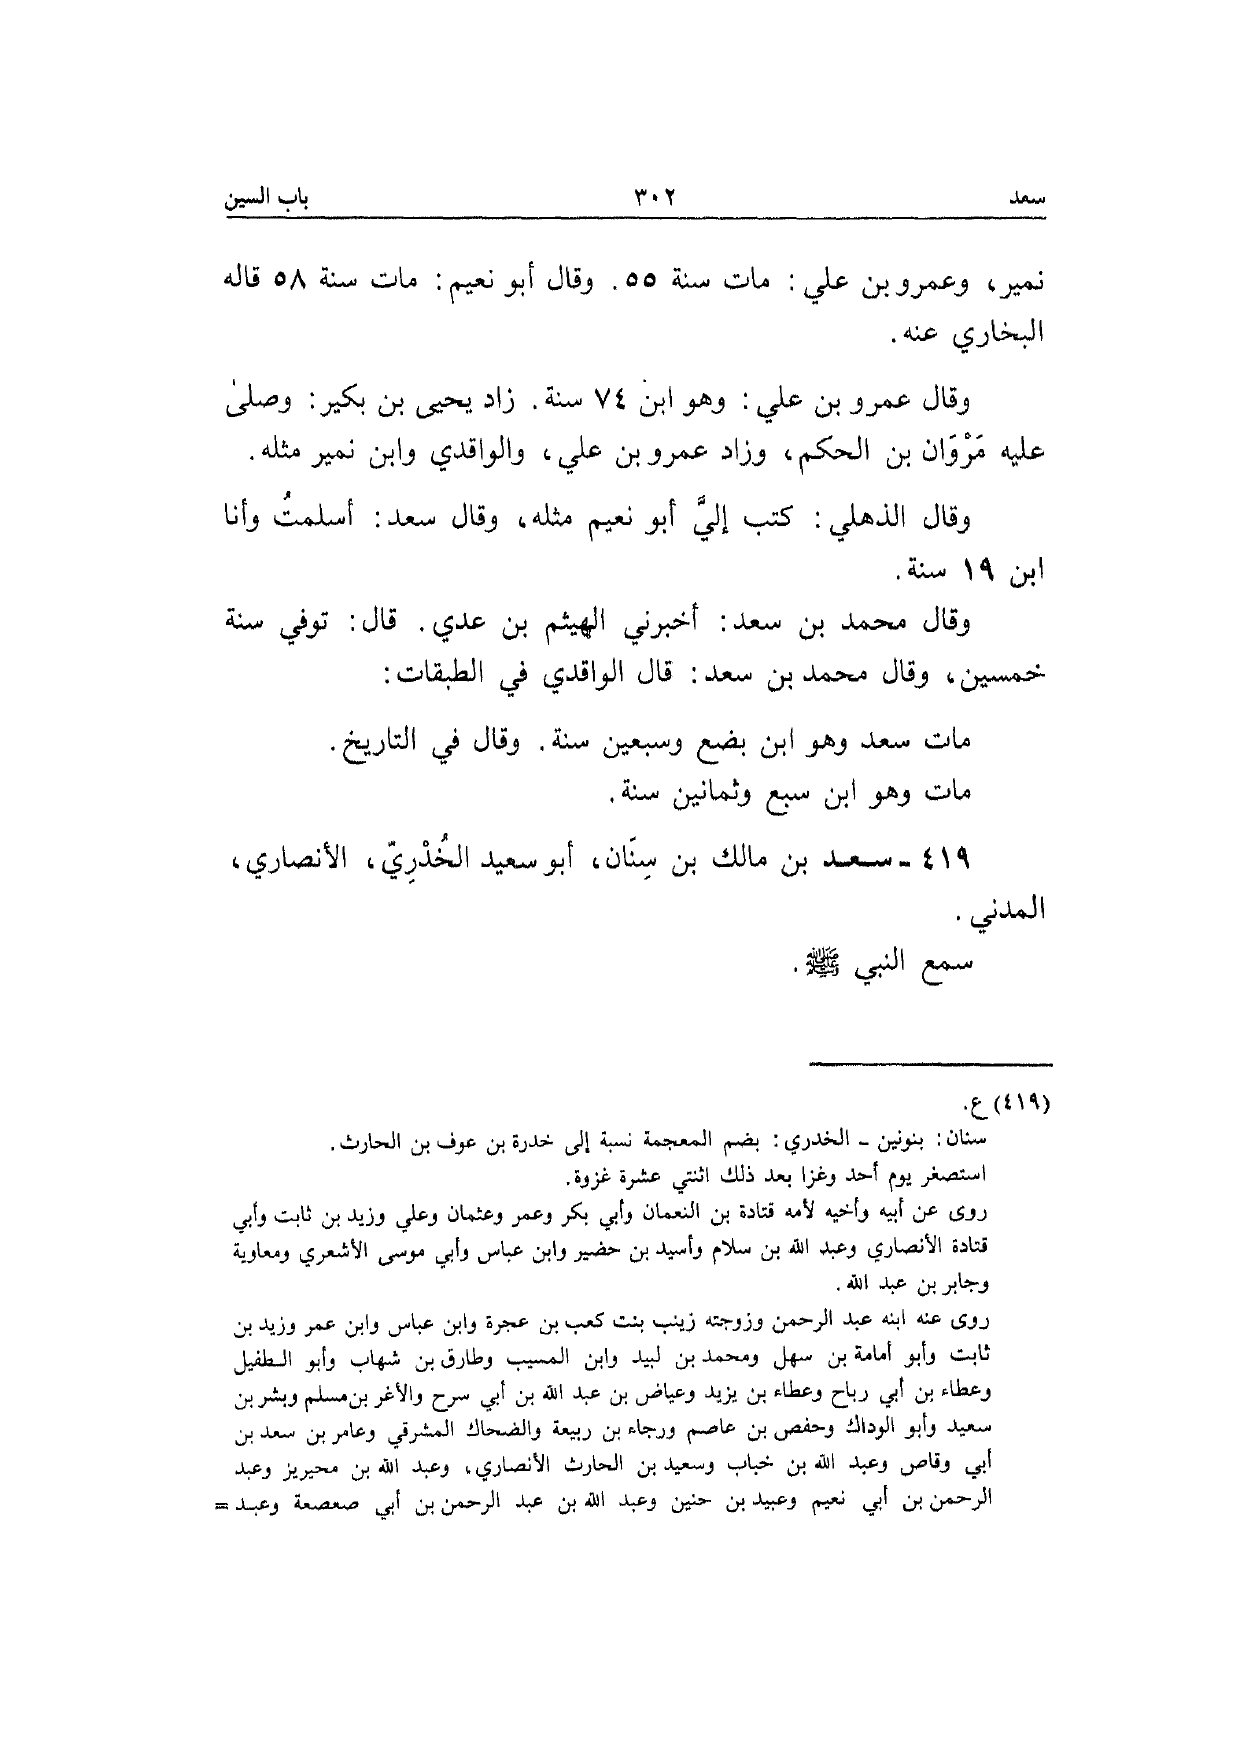 سعد ٣٠٢ باب السين
نمير، وعمرو بن علي: مات سنة ٥٥. وقال أبو نعيم: مات سنة ٥٨ قاله
البخاري عنه.
وقال عمرو بن علي: وهو ابن ٧٤ سنة. زاد يحيى بن بكير: وصلىٰ
عليه مَرْوَان بن الحكم، وزاد عمرو بن علي، والواقدي وابن نمير مثله.
وقال الذهلي: كتب إليَّ أبو نعيم مثله، وقال سعد: أسلمتُ وأنا
ابن ١٩ سنة.
وقال محمد بن سعد: أخبرني الهيثم بن عدي. قال: توفي سنة
خمسين، وقال محمد بن سعد: قال الواقدي في الطبقات:
مات سعد وهو ابن بضع وسبعين سنة. وقال في التاريخ.
مات وهو ابن سبع وثمانين سنة.
٤١٩ - سعد بن مالك بن سِنَّان، أبو سعيد الخُدْرِيّ، الأنصاري،
المدني.
سمع النبي ﷺ.
(٤١٩) ع.
سنان: بنونين - الخدري: بضم المعجمة نسبة إلى خدرة بن عوف بن الحارث.
استصغر يوم أحد وغزا بعد ذلك اثنتي عشرة غزوة.
روى عن أبيه وأخيه لأمه قتادة بن النعمان وأبي بكر وعمر وعثمان وعلي وزيد بن ثابت وأبي
قتادة الأنصاري وعبد الله بن سلام وأسيد بن حضير وابن عباس وأبي موسى الأشعري ومعاوية
وجابر بن عبد الله.
روى عنه ابنه عبد الرحمن وزوجته زينب بنت كعب بن عجرة وابن عباس وابن عمر وزيد بن
ثابت وأبو أمامة بن سهل ومحمد بن لبيد وابن المسيب وطارق بن شهاب وأبو الطفيل
وعطاء بن أبي رباح وعطاء بن يزيد وعياض بن عبد الله بن أبي سرح والأغر بن مسلم وبشر بن
سعيد وأبو الوداك وحفص بن عاصم ورجاء بن ربيعة والضحاك المشرقي وعامر بن سعد بن
أبي وقاص وعبد الله بن خباب وسعيد بن الحارث الأنصاري، وعبد الله بن محيريز وعبد
الرحمن بن أبي نعيم وعبيد بن حنين وعبد الله بن عبد الرحمن بن أبي صعصعة وعبد =